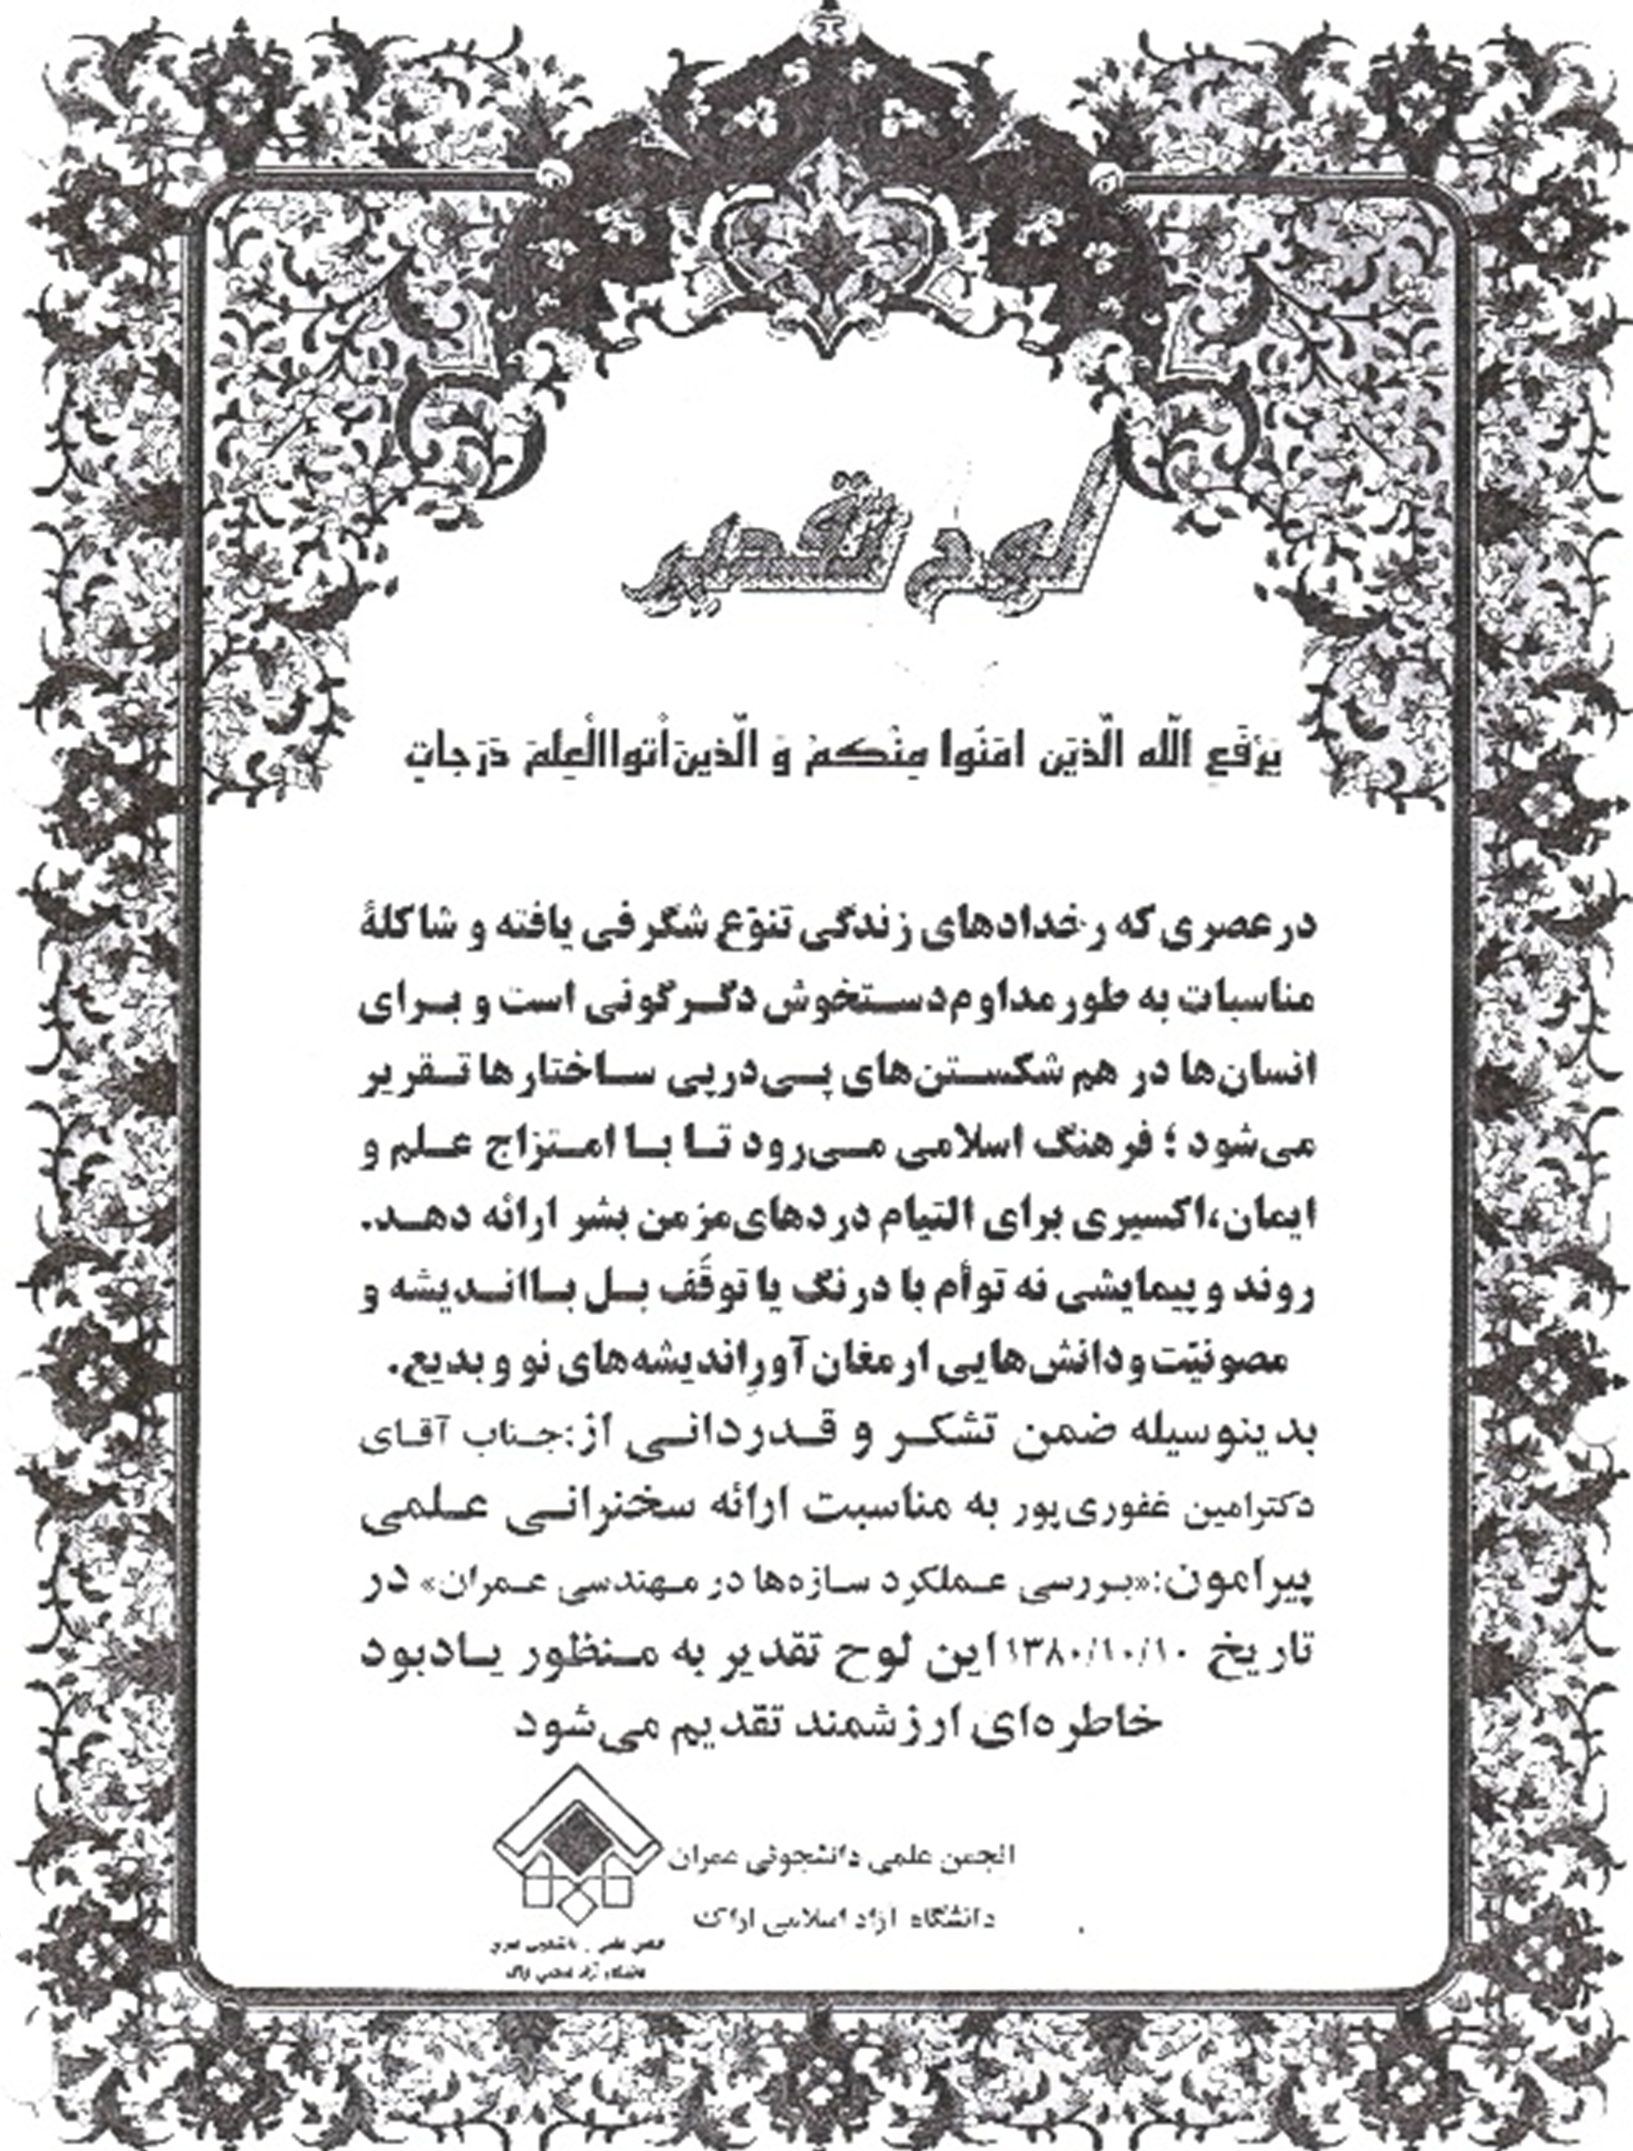 لوح تقدیر
یَرْفَعِ اللّه الَّذیَن امَنُوا مِنْکُمْ وَ الَّذینَ اُتوا الْعِلمَ دَرَجاتٍ
در عصری که رخدادهای زندگی تنوّع شگرفی یافته و شاکلهٔ
مناسبات به طور مداوم دستخوش دگرگونی است و برای
انسان‌ها در هم شکستن‌های پی‌درپی ساختارها تقریر
می‌شود ؛ فرهنگ اسلامی می‌رود تا با امتزاج علم و
ایمان،اکسیری برای التیام دردهای مزمن بشر ارائه دهد.
روند و پیمایشی نه توأم با درنگ یا توقّف بل با اندیشه و
مصونیّت و دانش‌هایی ارمغان آورِ اندیشه‌های نو و بدیع.
بدینوسیله ضمن تشکر و قدردانی از:جناب آقای
دکترامین غفوری‌پور به مناسبت ارائه سخنرانی علمی
پیرامون:«بررسی عملکرد سازه‌ها در مهندسی عمران» در
تاریخ ۱۳۸۰/۱۰/۱۰ این لوح تقدیر به منظور یادبود
خاطره‌ای ارزشمند تقدیم می‌شود
انجمن علمی دانشجوئی عمران
دانشگاه آزاد اسلامی اراک
انجمن علمی دانشجویی عمران
دانشگاه آزاد اسلامی اراک